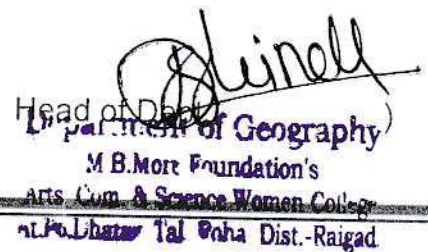 Head of Dept
Department of Geography)
M B.More Foundation's
Arts Com. & Science Women College
At.Po.Dhatav Tal Roha Dist.-Raigad